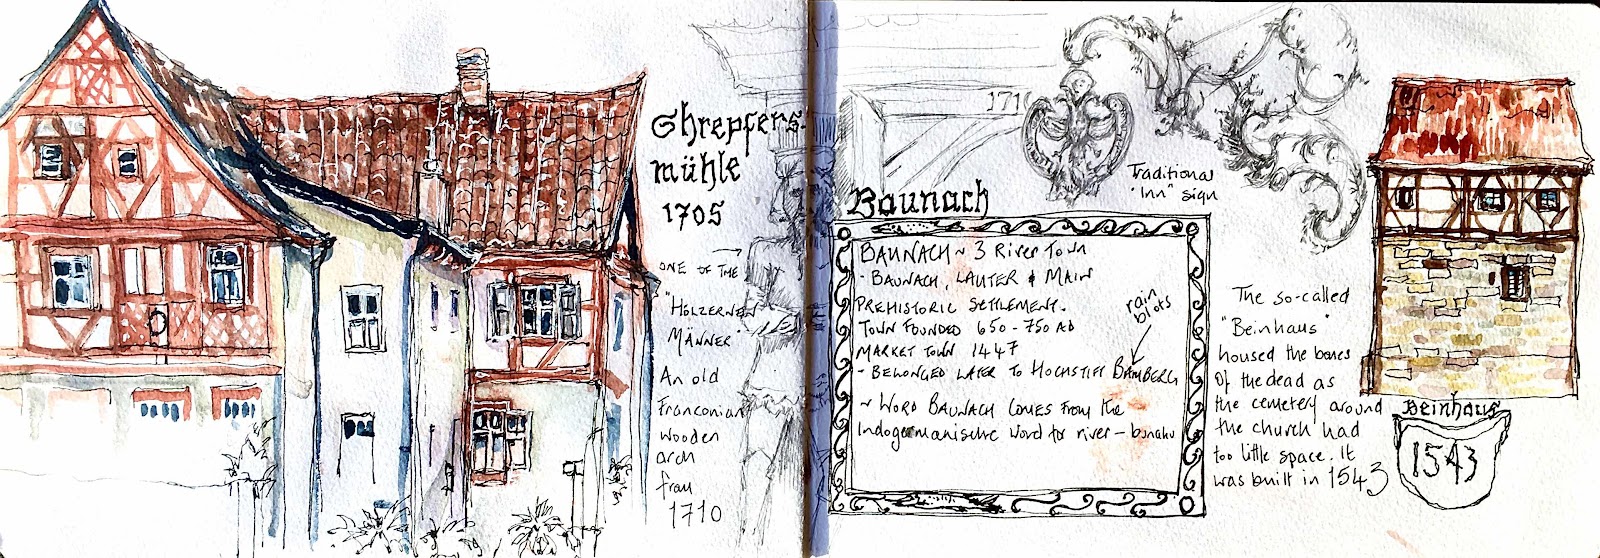 Shrepfers-
mühle
1705
ONE OF THE
"HÖLZERNEN
MÄNNER"
An old
Franconian
wooden
arch
from
1710
1710
Traditional
"Inn" sign
Baunach
BAUNACH ~ 3 River Town
- BAUNACH, LAUTER & MAIN
PREHISTORIC SETTLEMENT.
TOWN FOUNDED 650-750 AD
MARKET TOWN 1447
- BELONGED LATER TO HOCHSTIFT BAMBERG
~ WORD BAUNACH COMES FROM the
Indogermanische word for river - bunahu
rain
blots
The so-called
"Beinhaus"
housed the bones
of the dead as
the cemetery around
the church had
too little space. It
was built in 1543
Beinhaus
1543